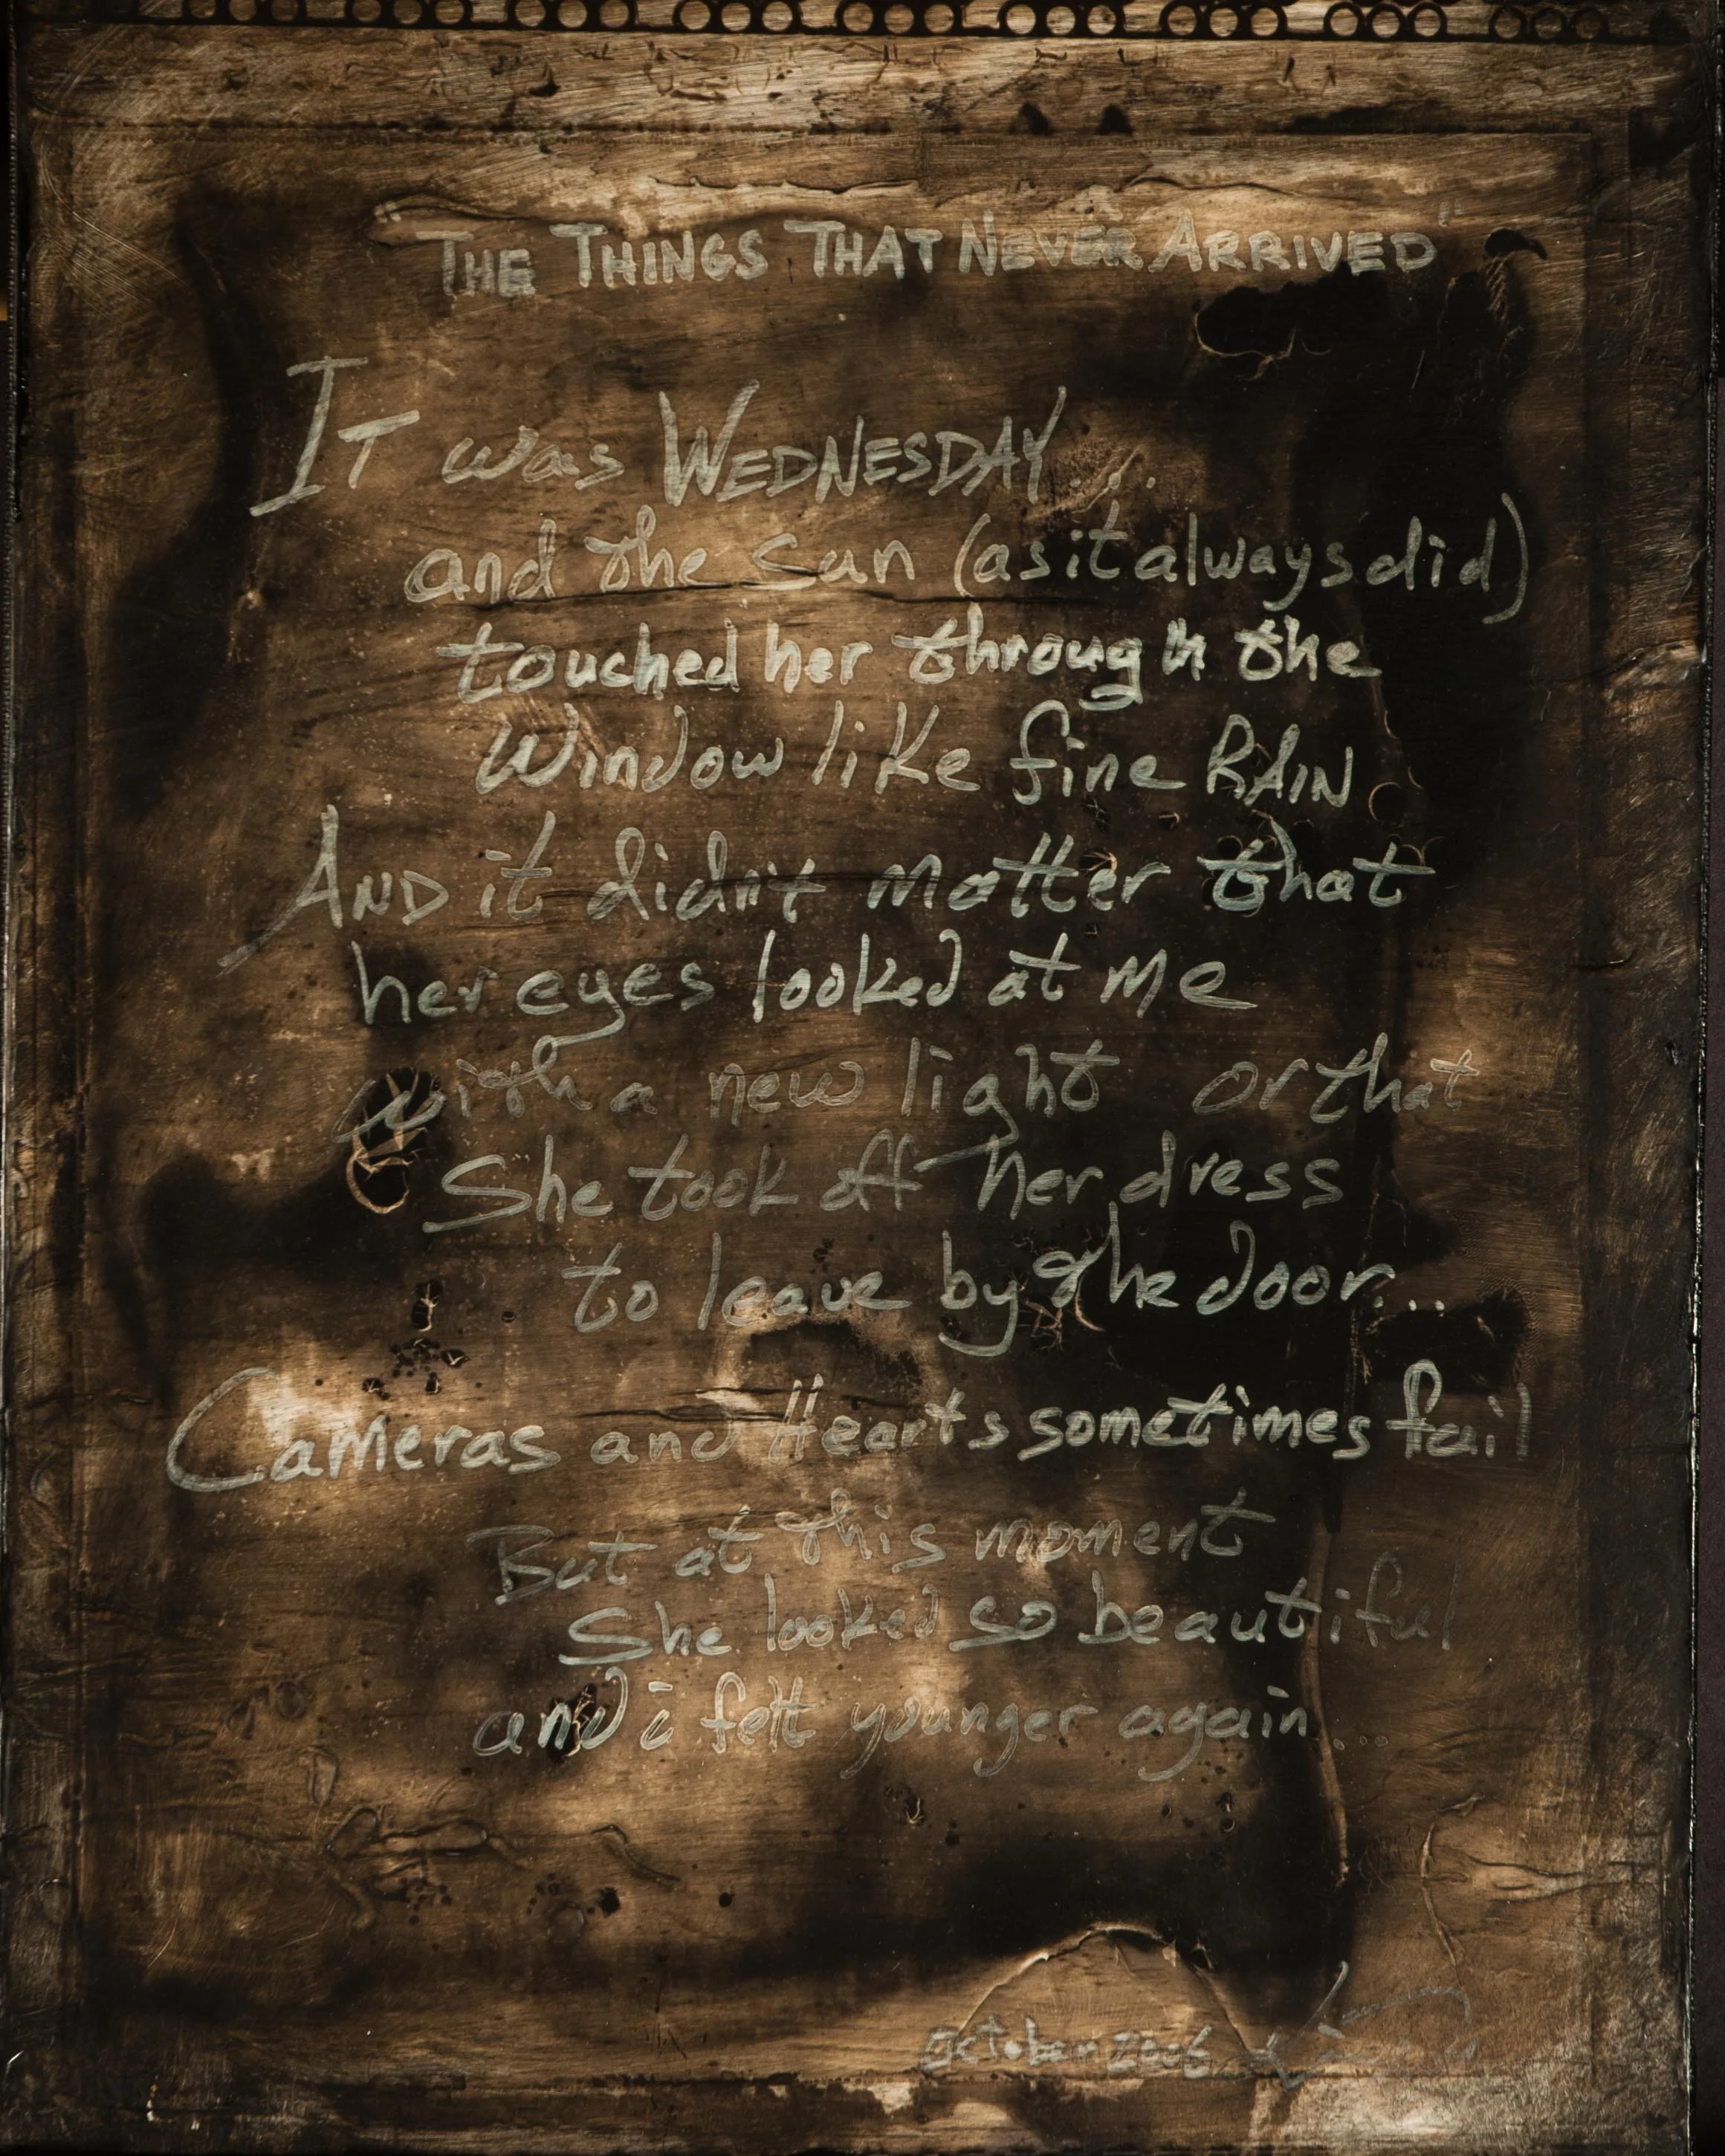 THE THINGS THAT NEVER ARRIVED"
IT was WEDNESDAY...
and the sun (as it always did)
touched her through the
Window like fine RAIN
AND it didn't matter that
her eyes looked at me
with a new light or that
She took off her dress
to leave by the door...
Cameras and Hearts sometimes fail
But at this moment
She looked so beautiful
and i felt younger again...
October 2006